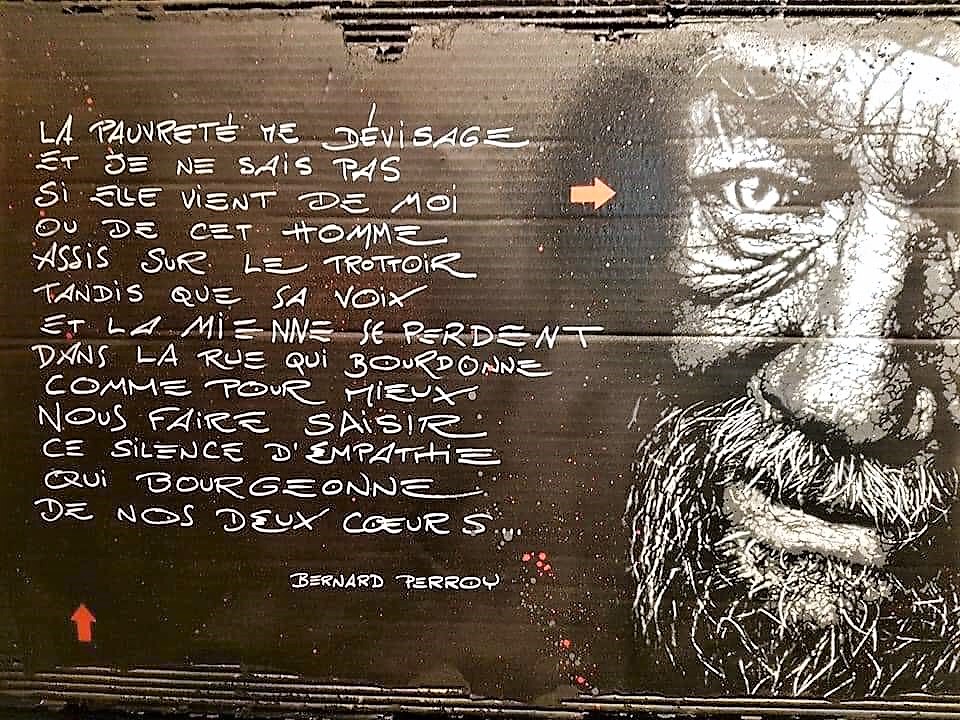 LA PAUVRETÉ ME DÉVISAGE
ET JE NE SAIS PAS
SI ELLE VIENT DE MOI
OU DE CET HOMME
ASSIS SUR LE TROTTOIR
TANDIS QUE SA VOIX
ET LA MIENNE SE PERDENT
DANS LA RUE QUI BOURDONNE
COMME POUR MIEUX
NOUS FAIRE SAISIR
CE SILENCE D'EMPATHIE
QUI BOURGEONNE
DE NOS DEUX CŒURS...
BERNARD PERROY